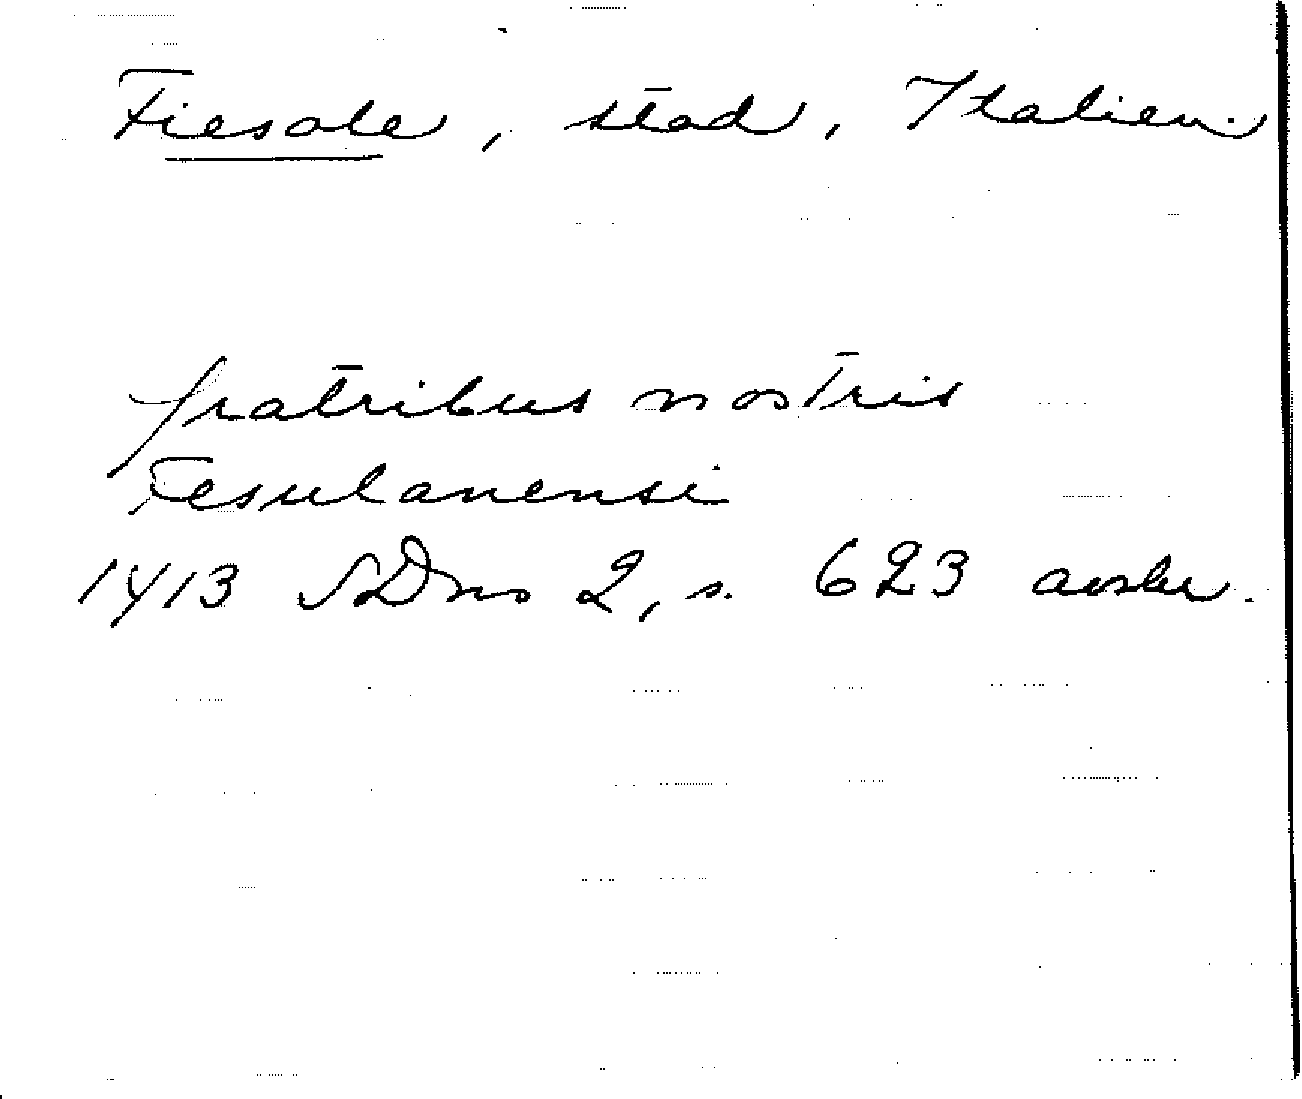 Fiesole, stad, Italien
fratribus nostris
Fesulanensi
1413 SDns 2, s. 623 avskr.